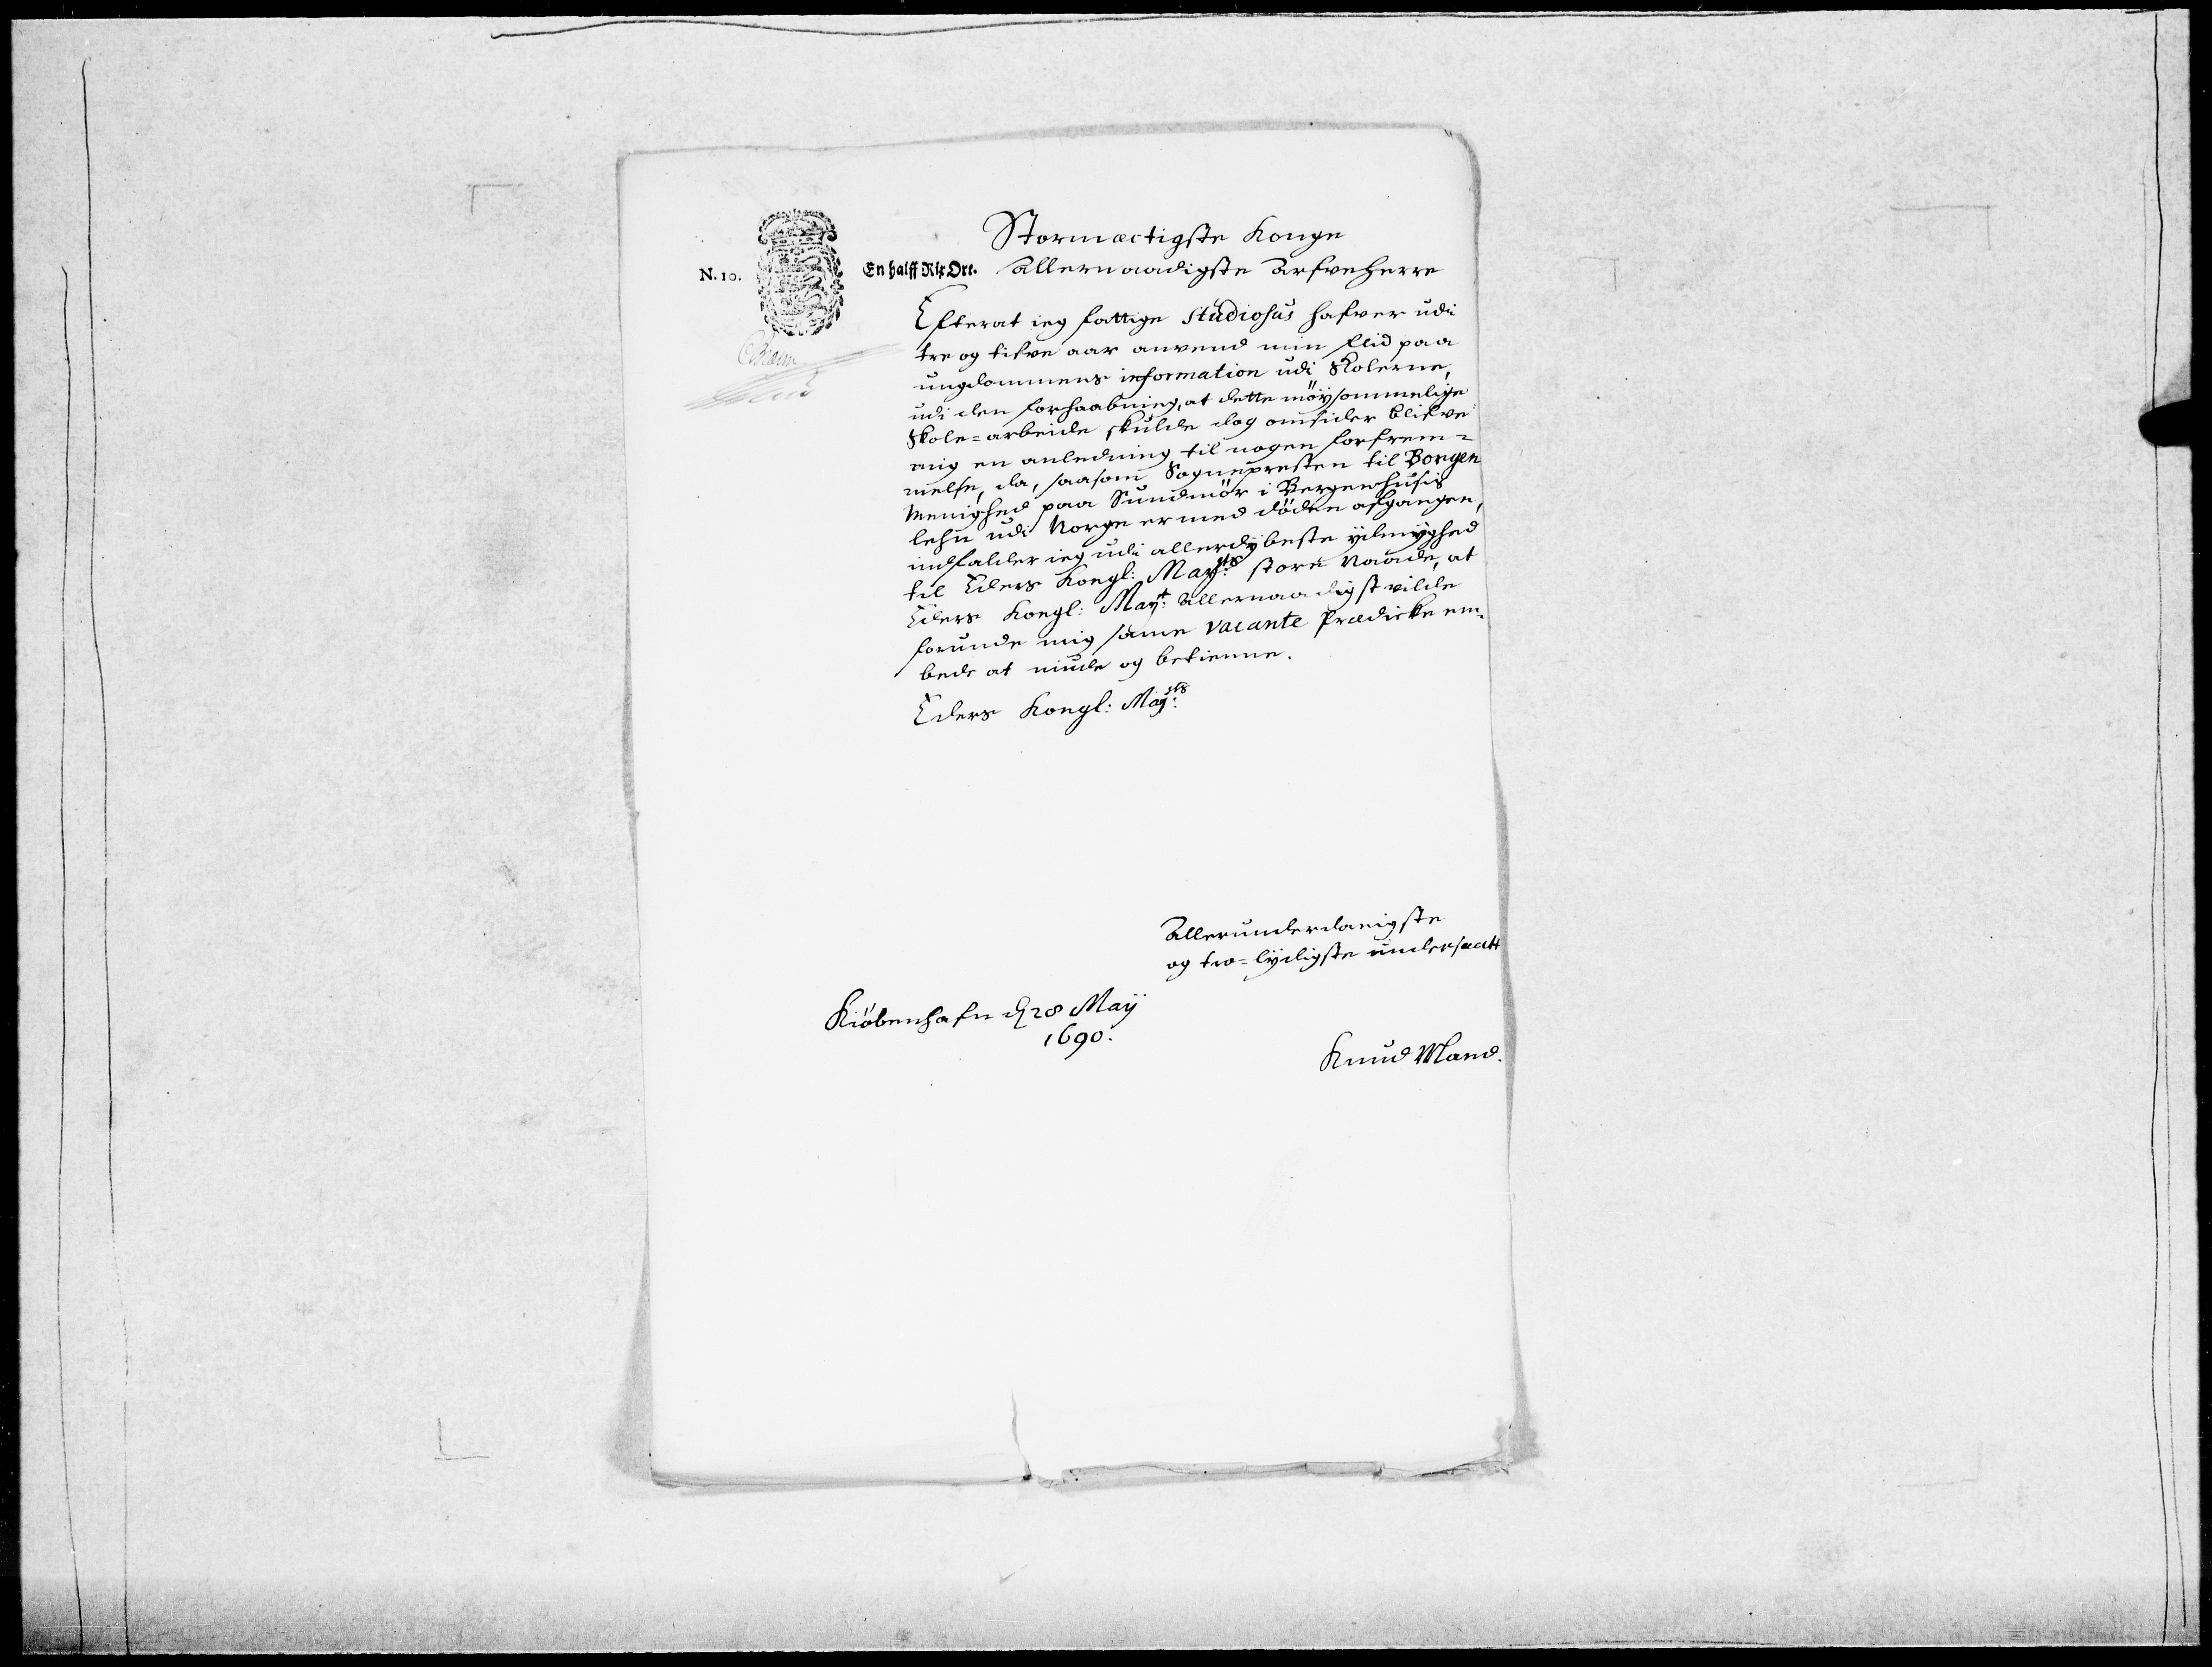 Stormæctigste Konge
N. 10. En halff Rix Ort. Allernaadigste Arfveherre
Efterat ieg fattige Studiosus hafver udi
tre og tifve aar anvend min flid paa
ungdommens information udi Skolerne,
udi den forhaabning, at dette möysommelige
Skole=arbeide skulde dog omsider blifve
mig en anledning til nogen forfrem=
melse, da, saasom Sognepresten til Borgen
Menighed paa Sundmör i Bergenhusis
lehn udi Norge er med döden afgangen,
indfalder ieg udi allerdybeste ydmyghed
til Eders Kongl: Mayts: store Naade, at
Eders Kongl: Mayt: Allernaadigst vilde
forunde mig samme vacante Prædicke em=
bede at niude og betienne.
Eders Kongl: Mayts:
Allerunderdanigste
og tro=lydigste undersaatt
Kiöbenhafn d 28 Maij
1690.
Knud Mand.